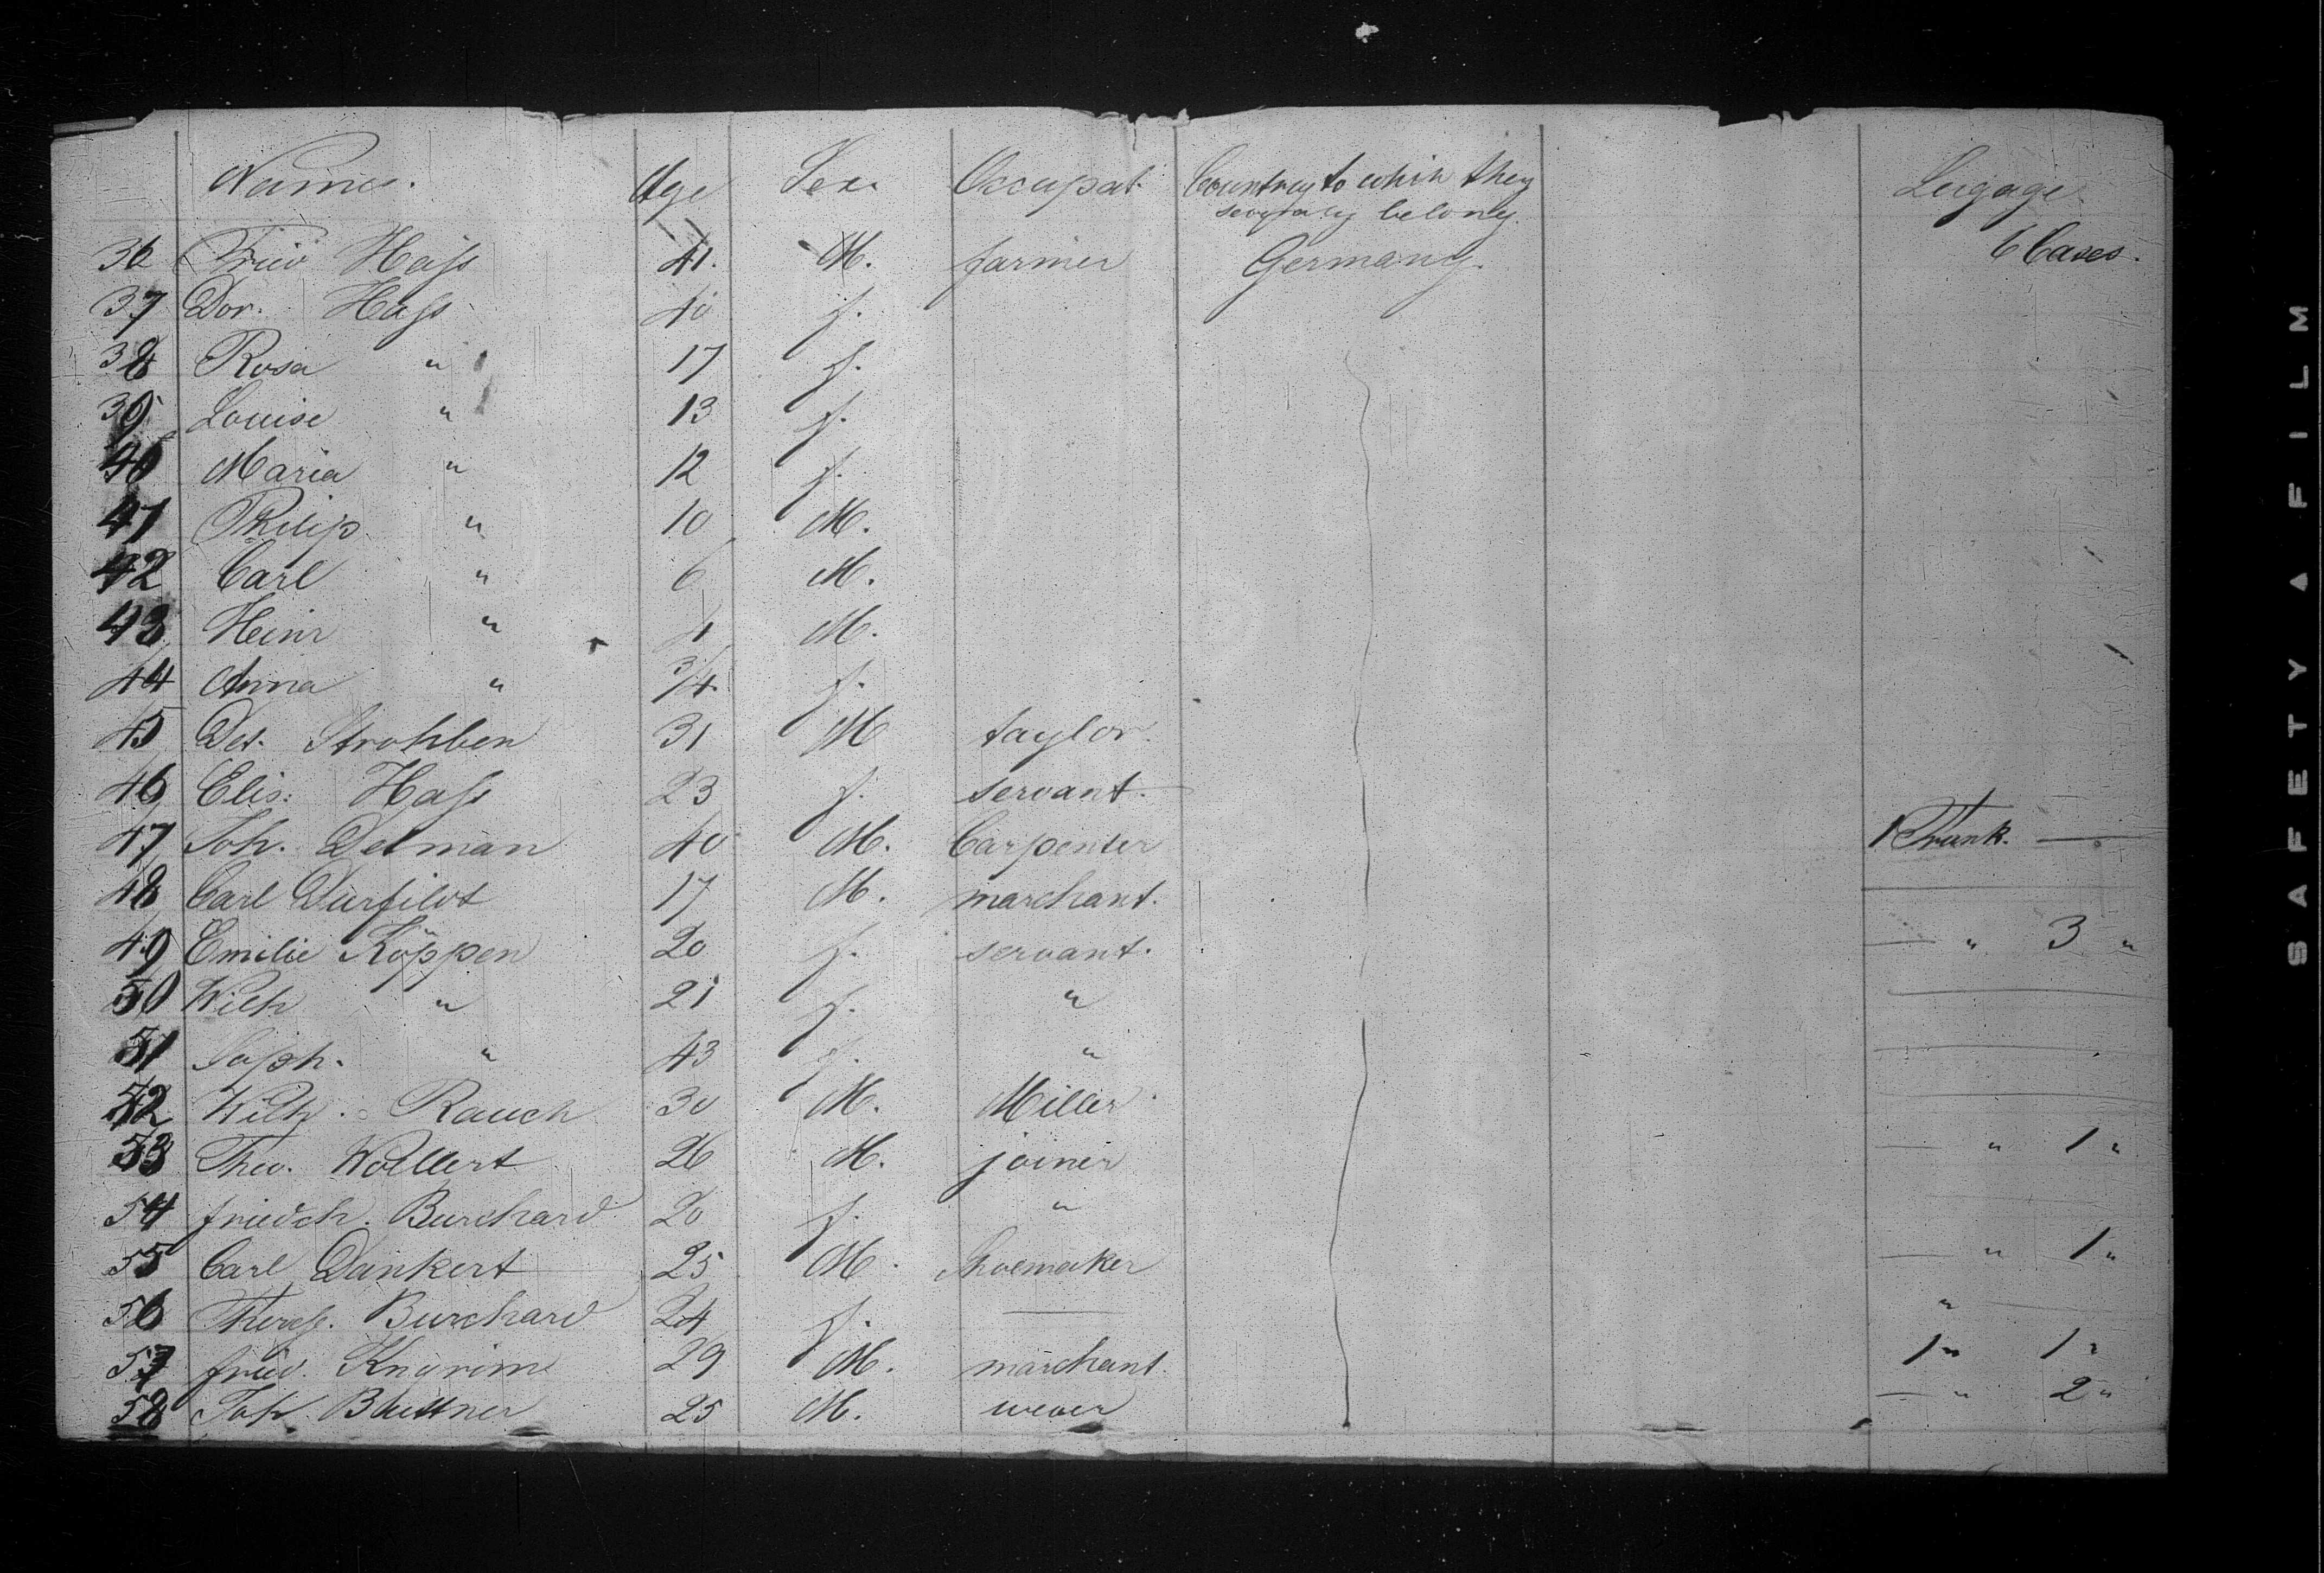 Names. Age Sex Occupat. Country to which they Lugage
belong.
36 Fried Hass 41. M. farmer Germany. 6 Cases.
37 Dor. Hass 40 f.
38 Rosa " 17 f.
39 Louise " 13 f.
40 Maria " 12 f.
41 Philip " 10 M.
42 Carl " 6 M.
43 Heinr " 1 M.
44 Anna " 3/4 f.
45 Det. Strohben 31 M taylor.
46 Elis: Hass 23 f. servant.
47 Joh. Detman 40 M. Carpenter 1 Trunk. —
48 Carl 17 M. marchant.
49 Emilie Köppen 20 f. servant. — " 3 "
50 Wilh " 21 f. "
51 Soph. " 43 f. "
52 Wilh. Rauch 30 M. Miller
53 Theo. Wollert 26 M. joiner — " 1 "
54 friedch. Burchard 20 f. "
55 Carl Dankert 25 M. Shoemaker — " 1 "
56 Theres. Burchard 24 f. — "
57 fried. 29 M. marchant. 1 " 1 "
58 Joh. Buttner 25 M. wever — " 2 "
SAFETY ▲ FILM